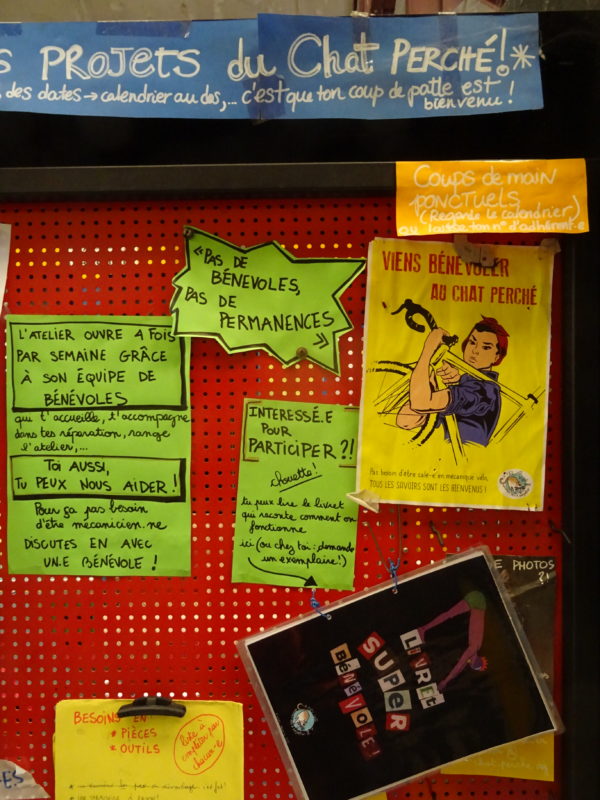 s PROJETS du Chat PERCHÉ!*
des dates → calendrier au dos,... c'est que ton coup de patte est
bienvenu !
Coups de main
ponctuels
(Regarde le calendrier)
ou laisse ton n° d'adhérent·e
« PAS DE
BÉNÉVOLES,
PAS DE
PERMANENCES
»
VIENS BÉNÉVOLER
AU CHAT PERCHÉ
Pas besoin d'être calé·e en mécanique vélo,
TOUS LES SAVOIRS SONT LES BIENVENUS !
L'ATELIER OUVRE 4 FOIS
PAR SEMAINE GRÂCE
À SON ÉQUIPE DE
BÉNÉVOLES
qui t'accueille, t'accompagne
dans tes réparation, range
l'atelier,...
TOI AUSSI,
TU PEUX NOUS AIDER !
Pour ça pas besoin
d'être mécanicien.ne
DISCUTES EN AVEC
UN.E BÉNÉVOLE !
INTERESSÉ.E
POUR
PARTICIPER ?!
chouette !
tu peux lire le livret
qui raconte comment on
fonctionne
ici (ou chez toi : demande
un exemplaire !)
E PHOTOS
?!
LIVRET
SUPER
BÉNÉVOLE!
BESOINS EN
* PIÈCES
* OUTILS
liste à
compléter par
chacun·e
ES